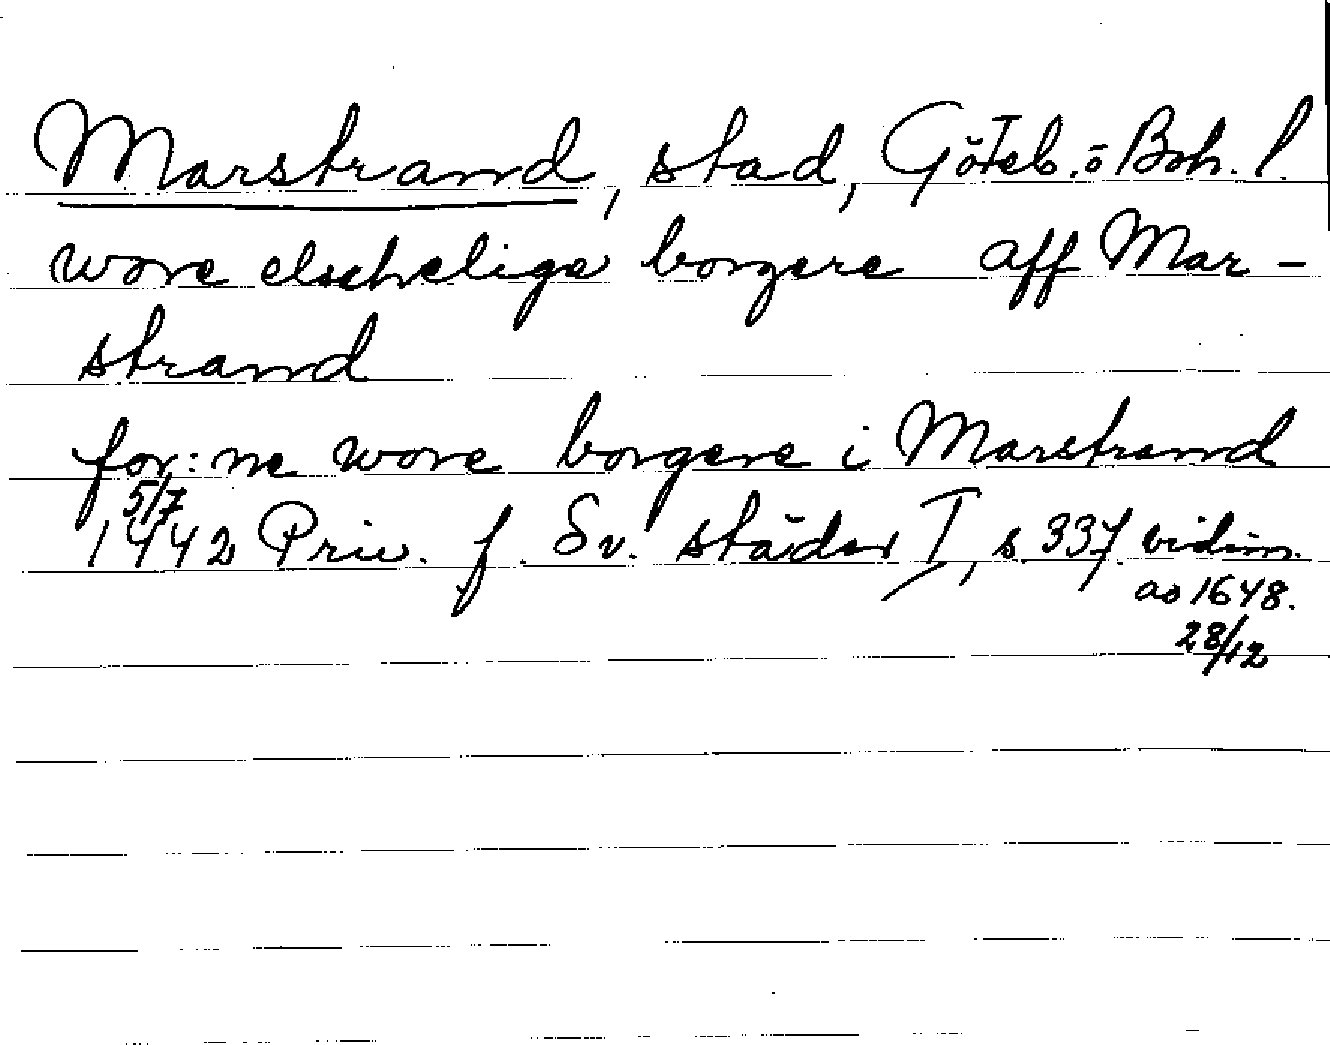 Marstrand, stad, Göteb. o Boh. l.
wore elschelige borgere aff Mar-
strand
for:ne wore borgere i Marstrand
5/7
1442 Priv. f. Sv. städer I, s. 337. vidim.
ao 1648.
28/12